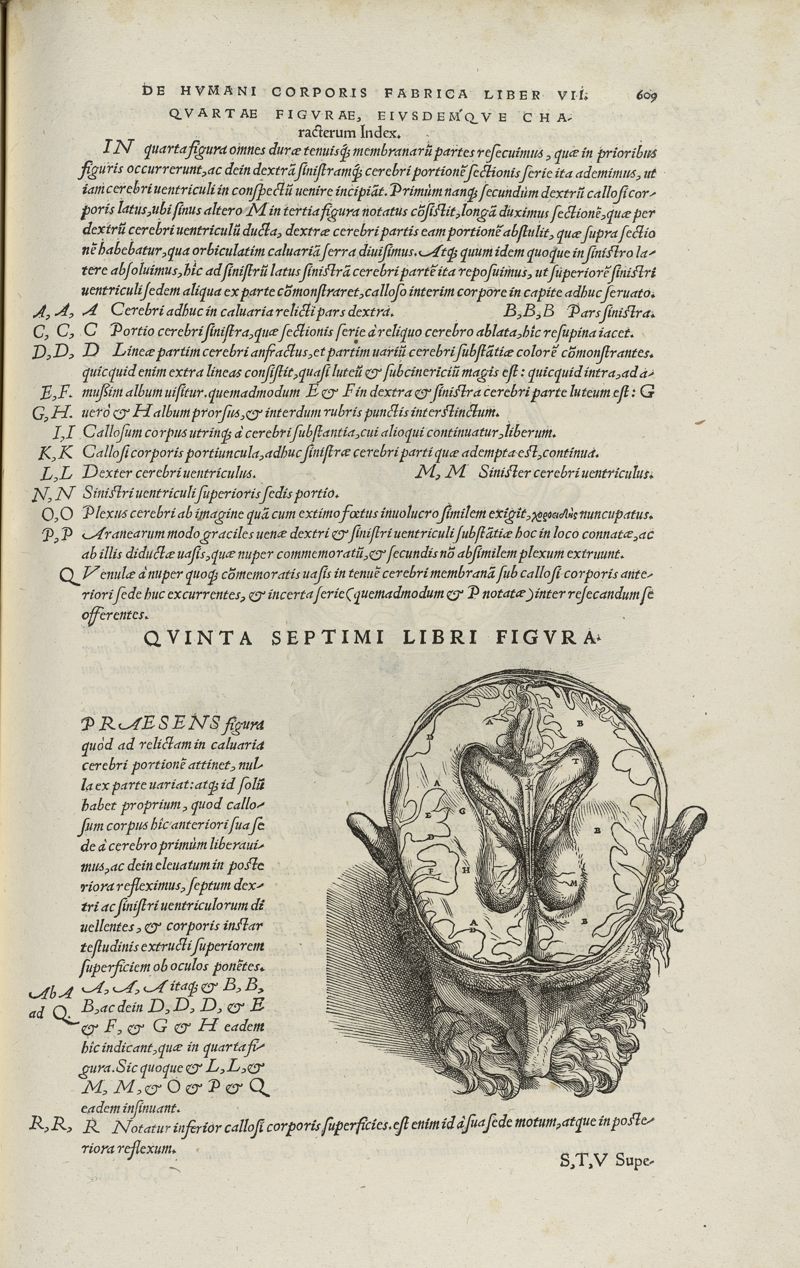 DE HVMANI CORPORIS FABRICA LIBER VII. 609
QVARTAE FIGVRAE, EIVSDEMQ́VE CHA-
racterum Index.
IN quarta figura omnes duræ tenuisq́; membranarũ partes resecuimus, quæ in prioribus
figuris occurrerunt, ac dein dextrã sinistramq́; cerebri portionẽ sectionis serie ita ademimus, ut
iam cerebri uentriculi in conspectũ uenire incipiãt. Primùm nanq; secundum dextrũ callosi cor-
poris latus, ubi sinus altero M in tertia figura notatus cõsistit, longã duximus sectionẽ, quæ per
dextrũ cerebri uentriculũ ducta, dextræ cerebri partis eam portionẽ abstulit, quæ supra sectio
nẽ habebatur, qua orbiculatim caluariã serra diuisimus. Atq; quum idem quoque in sinistro la-
tere absoluimus, hîc ad sinistrũ latus sinistrã cerebri partẽ ita reposuimus, ut superiorẽ sinistri
uentriculi sedem aliqua ex parte cõmonstraret, calloso interim corpore in capite adhuc seruato.
A, A, A Cerebri adhuc in caluaria relicti pars dextra. B, B, B Pars sinistra.
C, C, C Portio cerebri sinistra, quæ sectionis serie à reliquo cerebro ablata, hîc resupina iacet.
D, D, D Lineæ partim cerebri anfractus, et partim uariũ cerebri substãtiæ colorẽ cõmonstrantes.
quicquid enim extra lineas consistit, quasi luteũ & subcinericiũ magis est: quicquid intra, ad a-
E, F. mussim album uisitur. quemadmodum E & F in dextra & sinistra cerebri parte luteum est: G
G, H. uerò & H album prorsus, & interdum rubris punctis interstinctum.
I, I Callosum corpus utrinq; à cerebri substantia, cui alioqui continuatur, liberum.
K, K Callosi corporis portiuncula, adhuc sinistræ cerebri parti quæ adempta est, continua.
L, L Dexter cerebri uentriculus. M, M Sinister cerebri uentriculus.
N, N Sinistri uentriculi superioris sedis portio.
O, O Plexus cerebri ab imagine quã cum extimo fœtus inuolucro similem exigit, χοροειδὴς nuncupatus.
P, P Aranearum modo graciles uenæ dextri & sinistri uentriculi substãtiæ hoc in loco connatæ, ac
ab illis diductæ uasis, quæ nuper commemoratũ, & secundis nõ absimilem plexum extruunt.
Q Venulæ à nuper quoq; cõmemoratis uasis in tenuẽ cerebri membranã sub callosi corporis ante-
riori sede huc excurrentes, & incerta serie (quemadmodum & P notatæ) inter resecandum se
offerentes.
QVINTA SEPTIMI LIBRI FIGVRA.
PRAESENS figura
quòd ad relictam in caluaria
cerebri portionẽ attinet, nul-
la ex parte uariat: atq; id solũ
habet proprium, quod callo-
sum corpus hîc anteriori sua se
de à cerebro primùm liberaui-
mus, ac dein eleuatum in poste
riora refleximus, septum dex-
tri ac sinistri uentriculorum di
uellentes, & corporis instar
testudinis extructi superiorem
superficiem ob oculos ponẽtes.
Ab A A, A, A itaq; & B, B,
ad Q. B, ac dein D, D, D, & E
& F, & G & H eadem
hîc indicant, quæ in quarta fi-
gura. Sic quoque & L, L, &
M, M, & O & P & Q
eadem insinuant.
R, R, R Notatur inferior callosi corporis superficies. est enim id à sua sede motum, atque in poste-
riora reflexum.
S, T, V Supe-